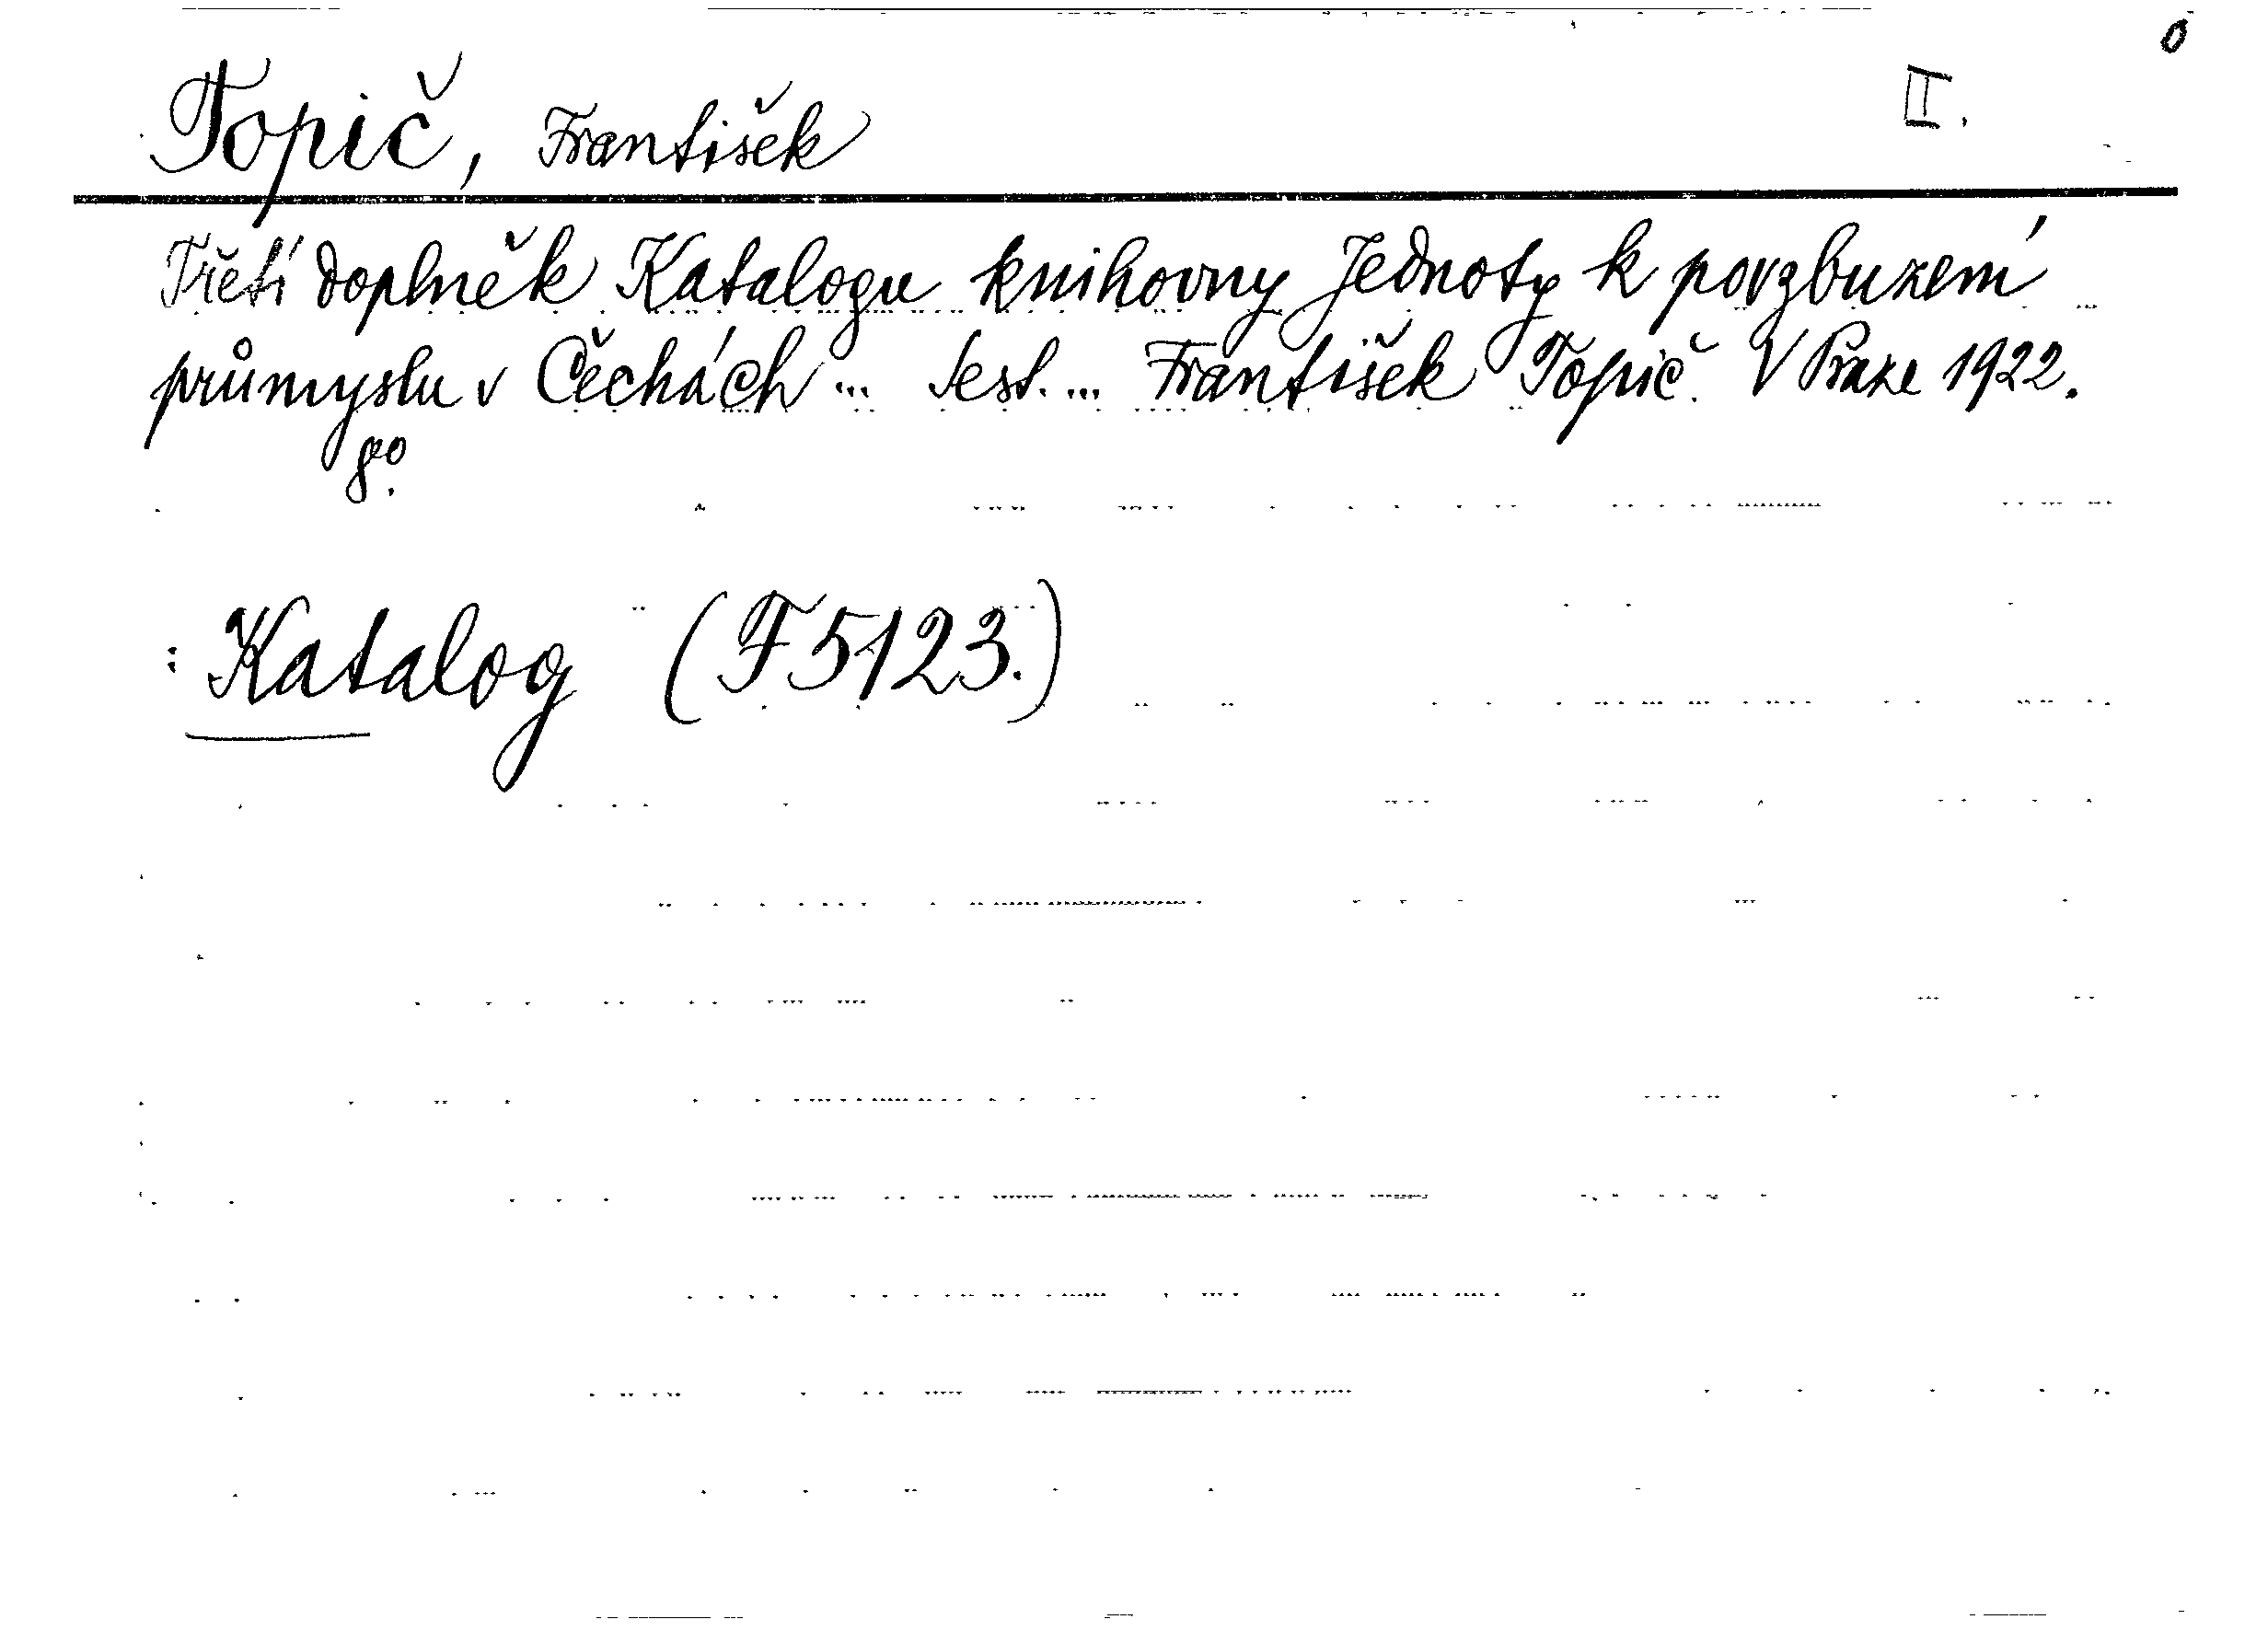 0
Topič, František II.
Třetí doplněk Katalogu knihovny Jednoty k povzbuzení
průmyslu v Čechách ... Sest. ... František Topič. V Praze 1922.
8º.
: Katalog (F 5123.)